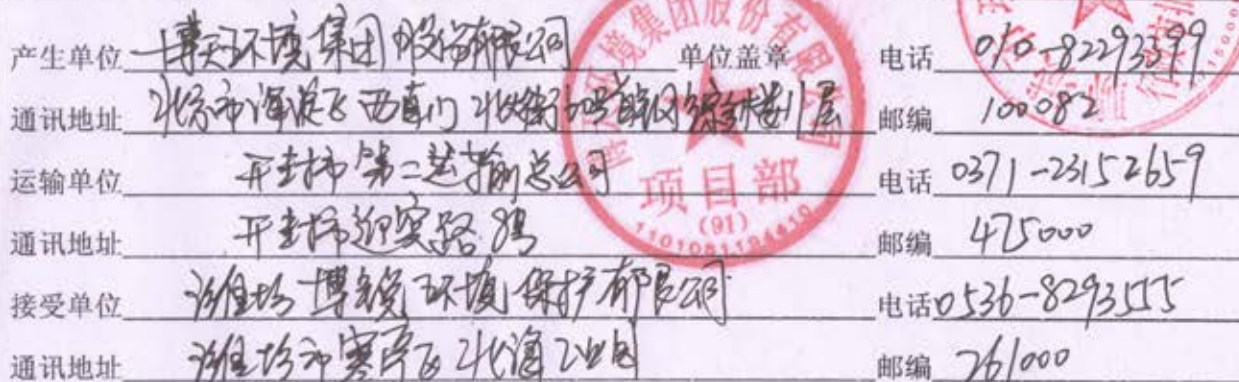 产生单位 博天环境集团股份有限公司 单位盖章 电话 010-82293399
通讯地址 北京市海淀区西直门北大街 号 综合楼 层 邮编 100082
运输单位 开封市第二运输总公司 电话 0371-23152659
通讯地址 开封市迎宾路8号 邮编 475000
接受单位 潍坊博锐环境保护有限公司 电话 0536-8293555
通讯地址 潍坊市寒亭区北海工业园 邮编 261000
环境集团股份有限公司
项目部
(91)